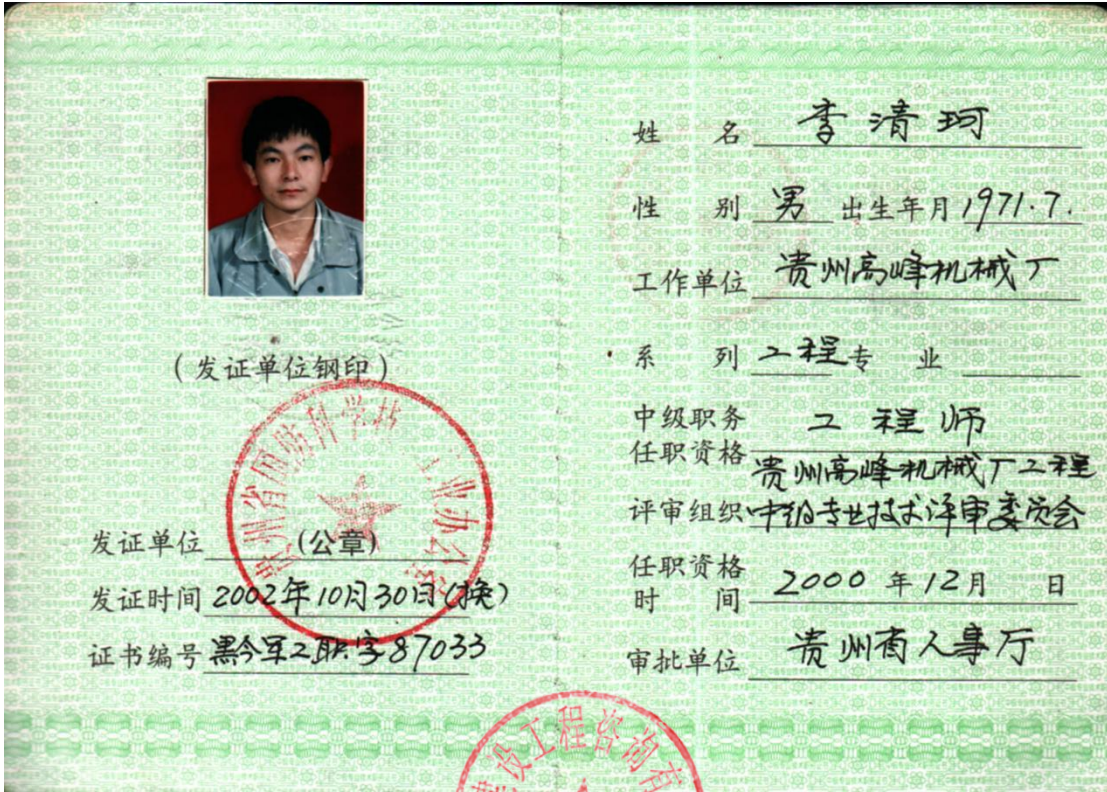 (发证单位钢印)
贵州省国防科学技术工业办公室
发证单位 (公章)
发证时间 2002年10月30日(换)
证书编号 黔今军工职字87033
姓名 李清珂
性别 男 出生年月 1971.7.
工作单位 贵州高峰机械厂
系列 工程 专业
中级职务任职资格 工程师
贵州高峰机械厂工程
评审组织 中级专业技术评审委员会
任职资格时间 2000年12月 日
审批单位 贵州省人事厅
建设工程咨询有